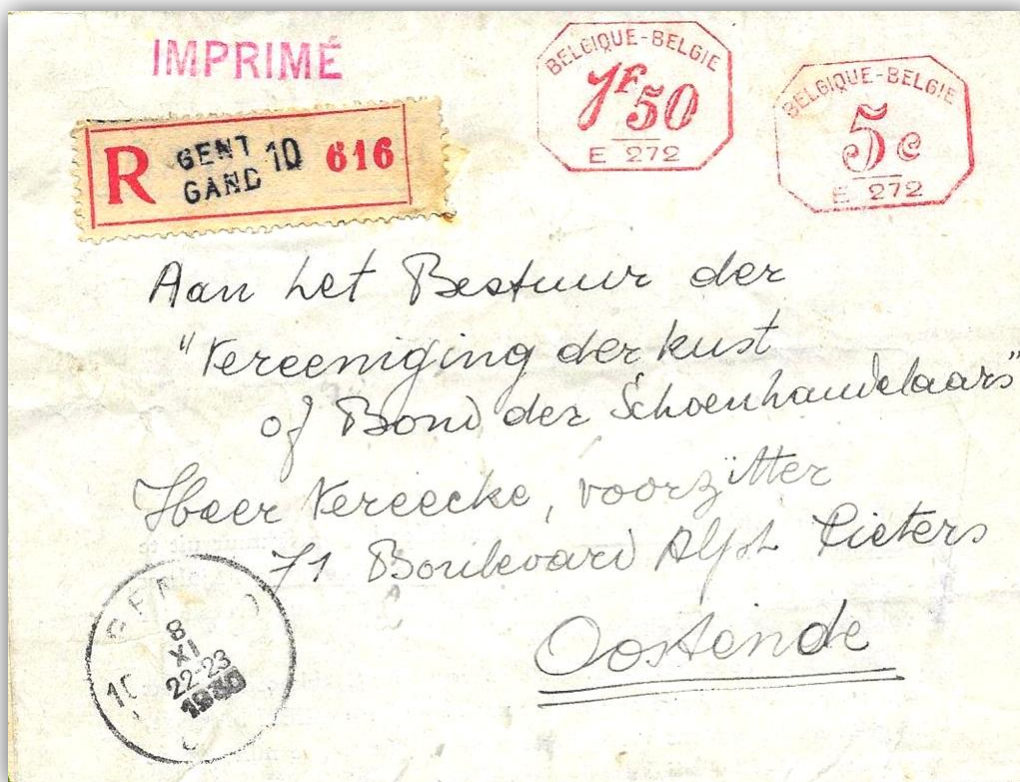 IMPRIMÉ
BELGIQUE-BELGIE
1F50
E 272
BELGIQUE-BELGIE
5c
E 272
R GENT 10 616
GAND
Aan het Bestuur der
"Vereeniging der kust
of Bond der Schoenhandelaars"
Heer Vereecke, voorzitter
71 Boulevard Alph Pieters
Oostende
8
XI
22-23